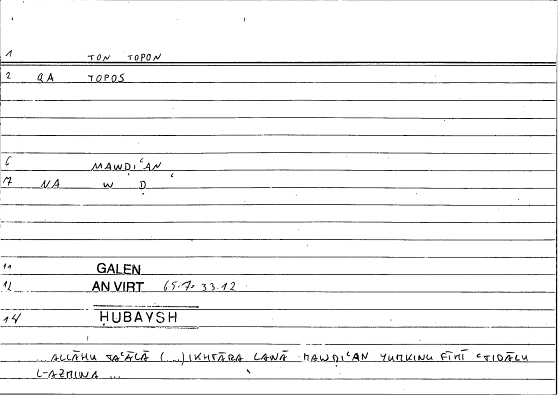 1 TON TOPON
2 QA TOPOS
6 MAWḌIʿAN
7 NA W Ḍ ʿ
11 GALEN
12 AN VIRT 65.7. 33.12
14 ḤUBAYSH
... ALLĀHU TAʿĀLĀ (...) IKHTĀRA LANĀ MAWḌIʿAN YUMKINU FĪHĪ ʿTIDĀLU
L-AZMINA ...